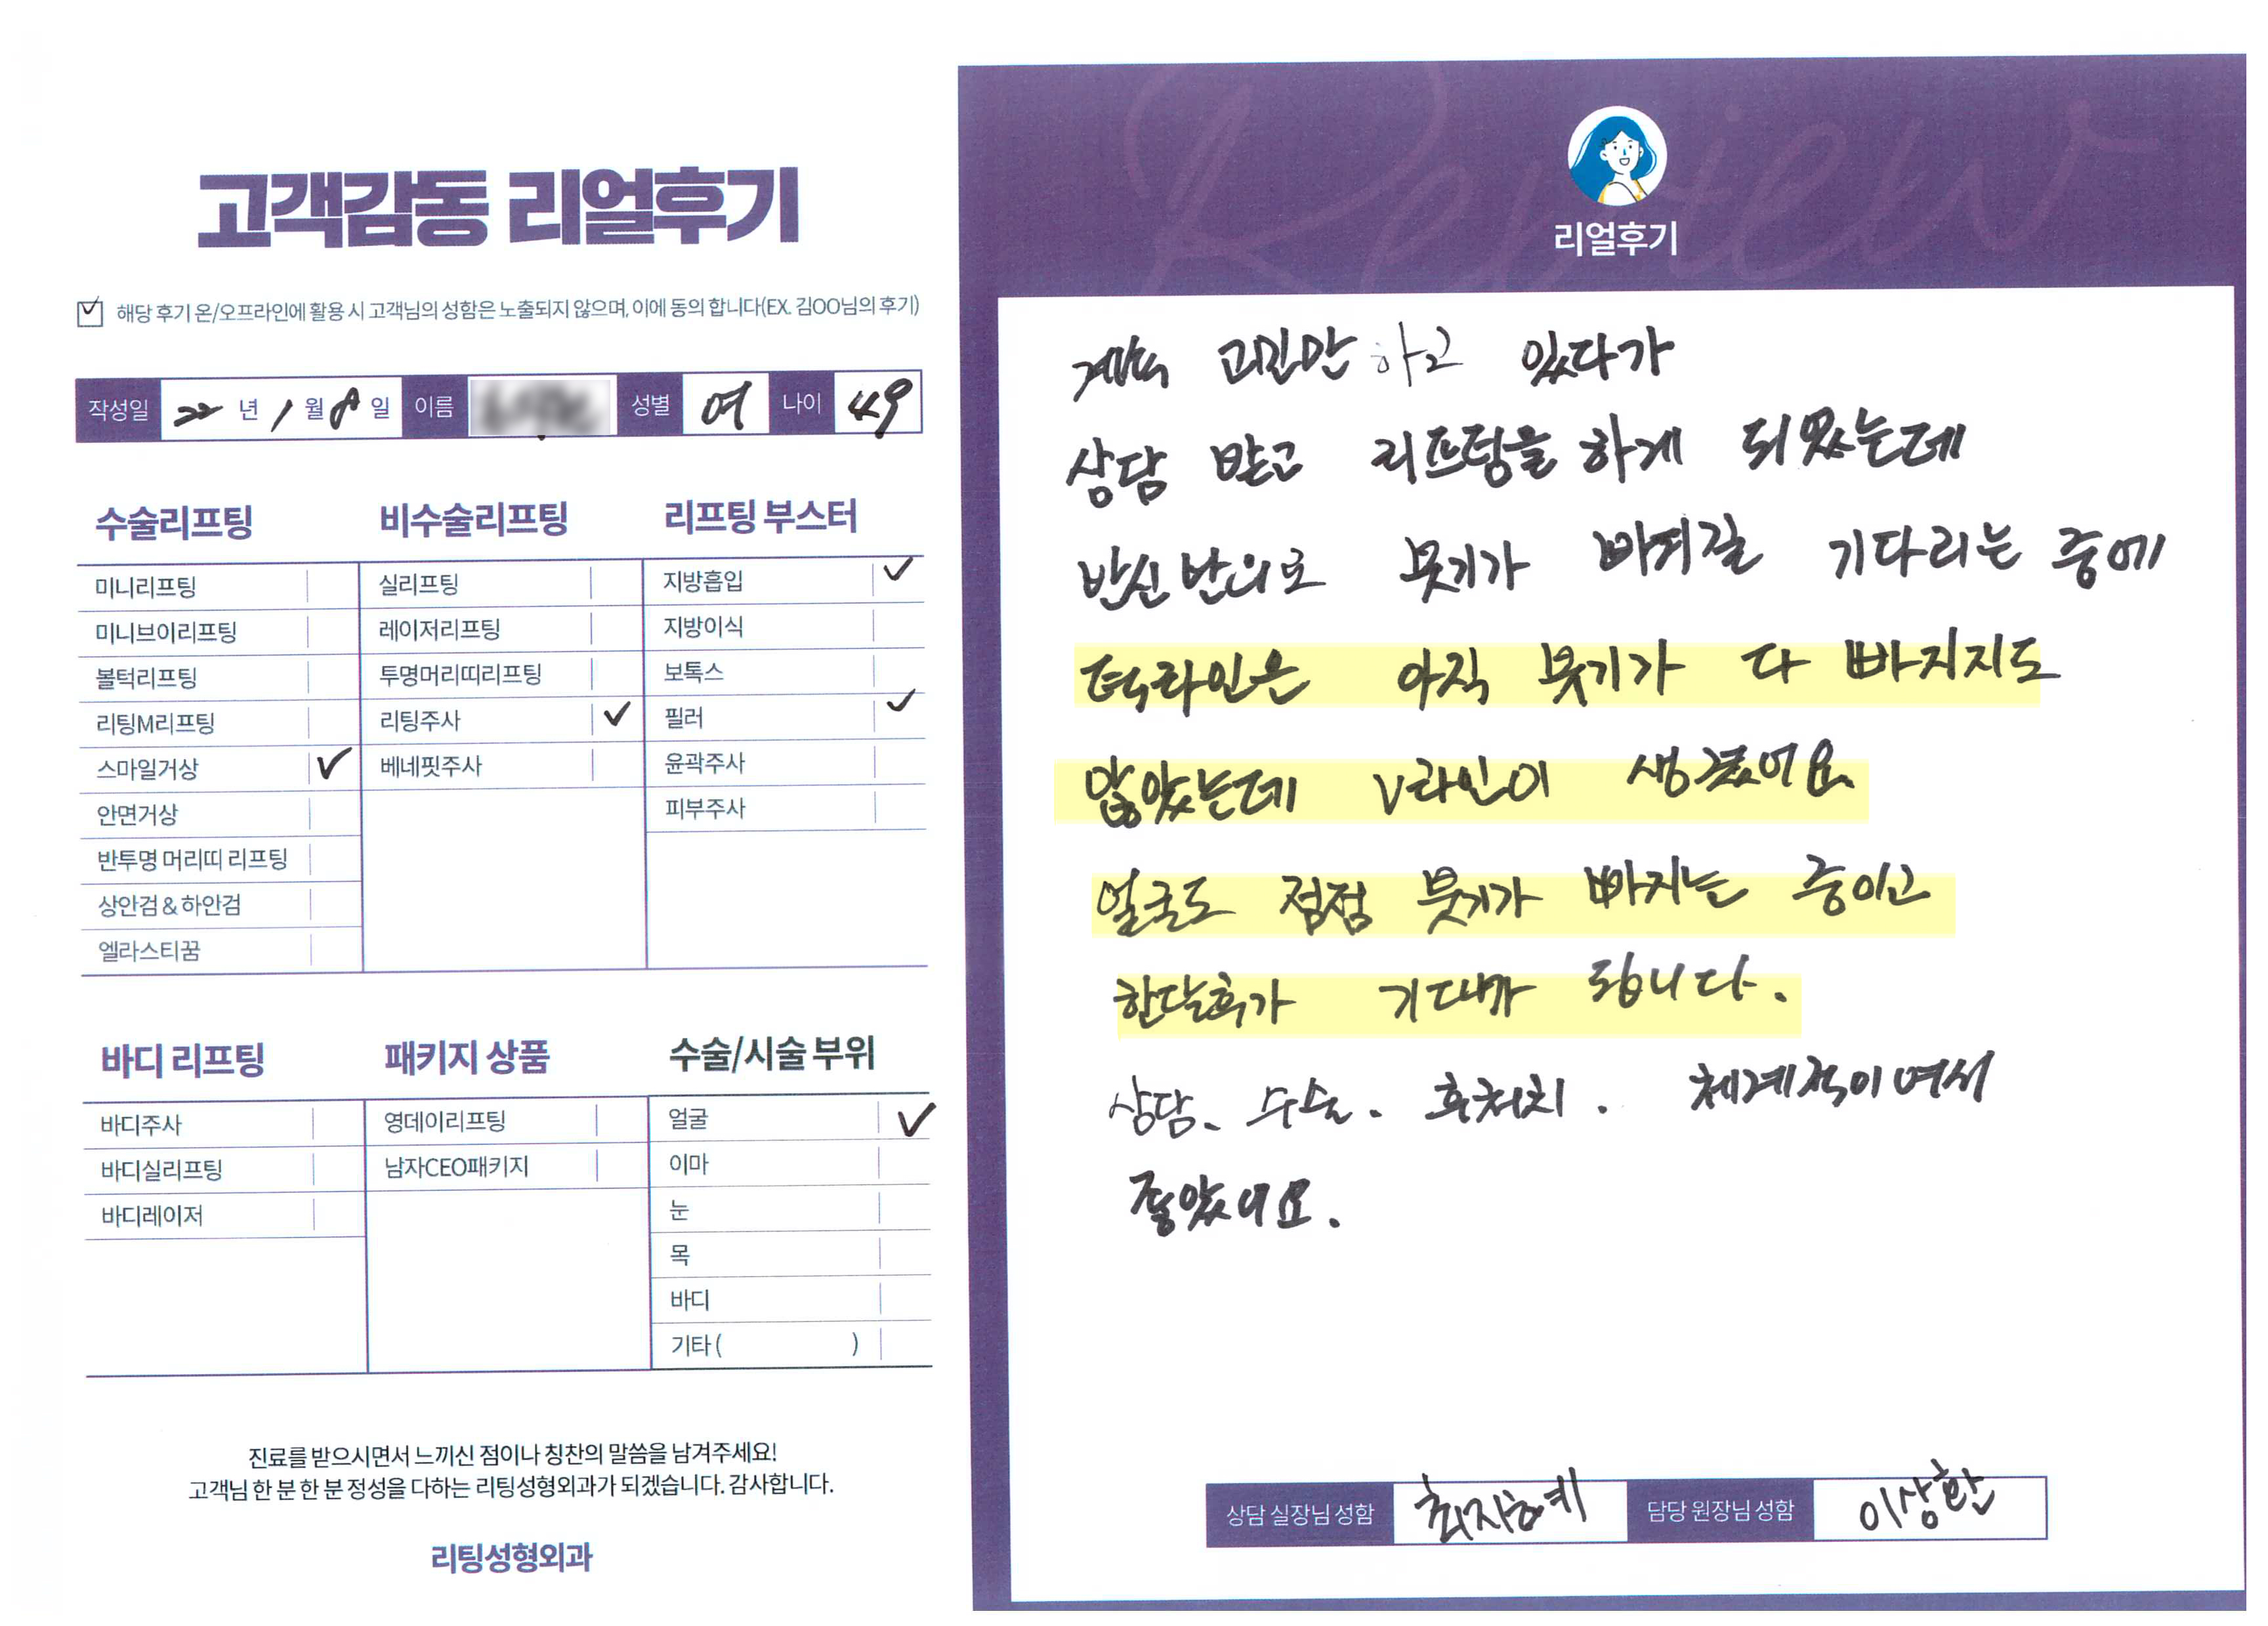 고객감동 리얼후기
해당 후기 온/오프라인에 활용 시 고객님의 성함은 노출되지 않으며, 이에 동의 합니다(EX. 김OO님의 후기)
작성일 22 년 1 월 8 일 이름 성별 여 나이 49
수술리프팅
미니리프팅
미니브이리프팅
볼턱리프팅
리팅M리프팅
스마일거상
안면거상
반투명 머리띠 리프팅
상안검 & 하안검
엘라스티꿈
비수술리프팅
실리프팅
레이저리프팅
투명머리띠리프팅
리팅주사
베네핏주사
리프팅 부스터
지방흡입
지방이식
보톡스
필러
윤곽주사
피부주사
바디 리프팅
바디주사
바디실리프팅
바디레이저
패키지 상품
영데이리프팅
남자CEO패키지
수술/시술 부위
얼굴
이마
눈
목
바디
기타 ( )
진료를 받으시면서 느끼신 점이나 칭찬의 말씀을 남겨주세요!
고객님 한 분 한 분 정성을 다하는 리팅성형외과가 되겠습니다. 감사합니다.
리팅성형외과
Review
리얼후기
계속 고민만 하고 있다가
상담 받고 리프팅을 하게 되었는데
반신반의로 붓기가 빠져길 기다리는 중에
턱라인은 아직 붓기가 다 빠지지도
않았는데 V라인이 생겼어요.
얼굴도 점점 붓기가 빠지는 중이고
한달후가 기대가 됩니다.
상담. 수술. 후처치. 체계적이여서
좋았어요.
상담 실장님 성함 담당 원장님 성함 이상한